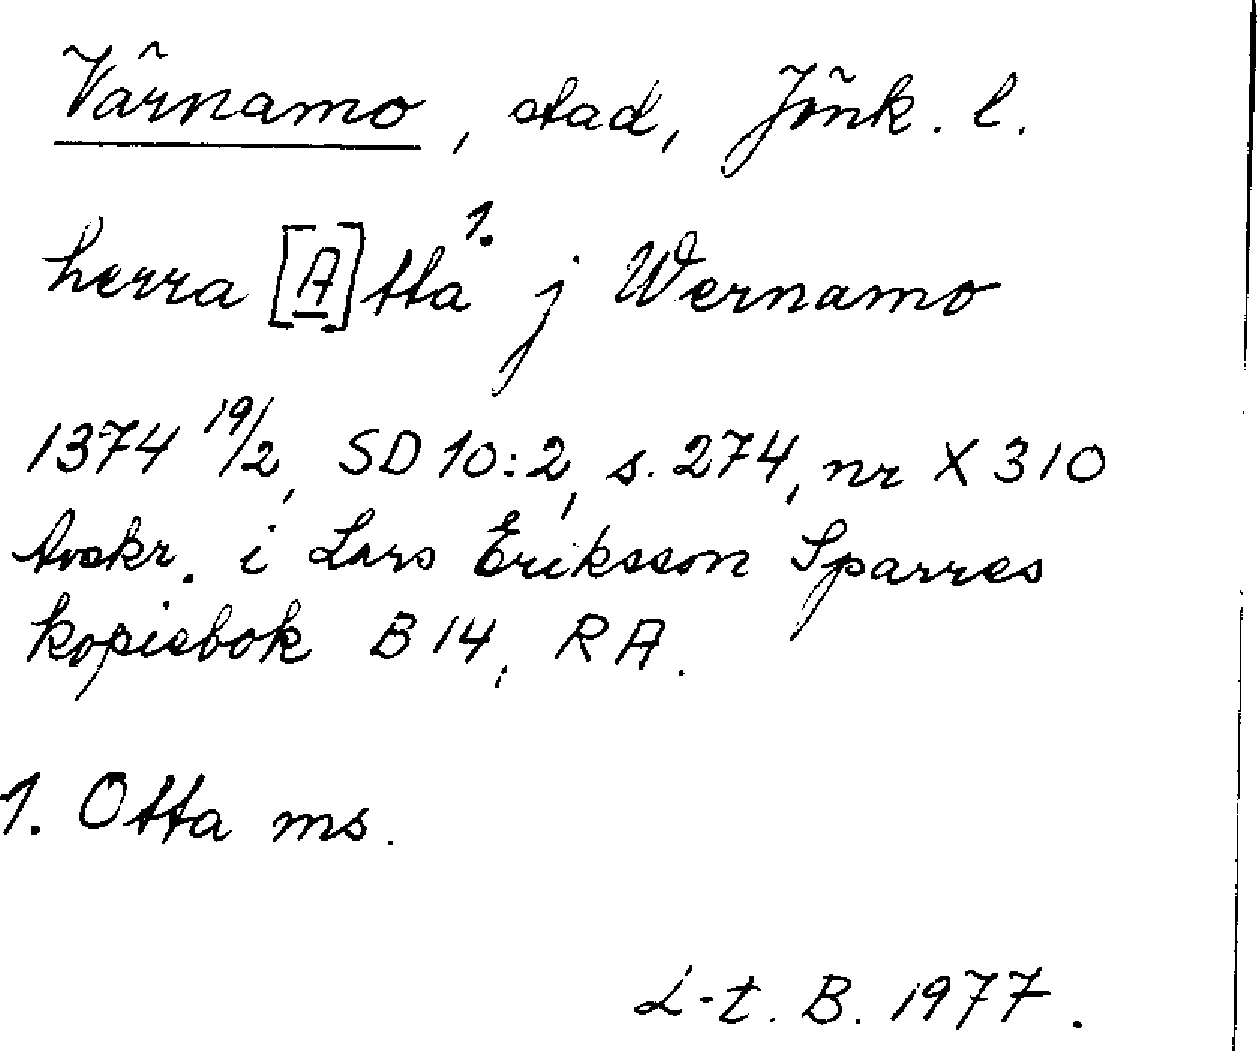 Värnamo, stad, Jönk. l.
herra [A]tta¹· j Wernamo
1374 19/2, SD 10:2, s. 274, nr X 310
Avskr. i Lars Eriksson Sparres
kopiebok B 14, RA.
1. Otta ms.
L-t. B. 1977.